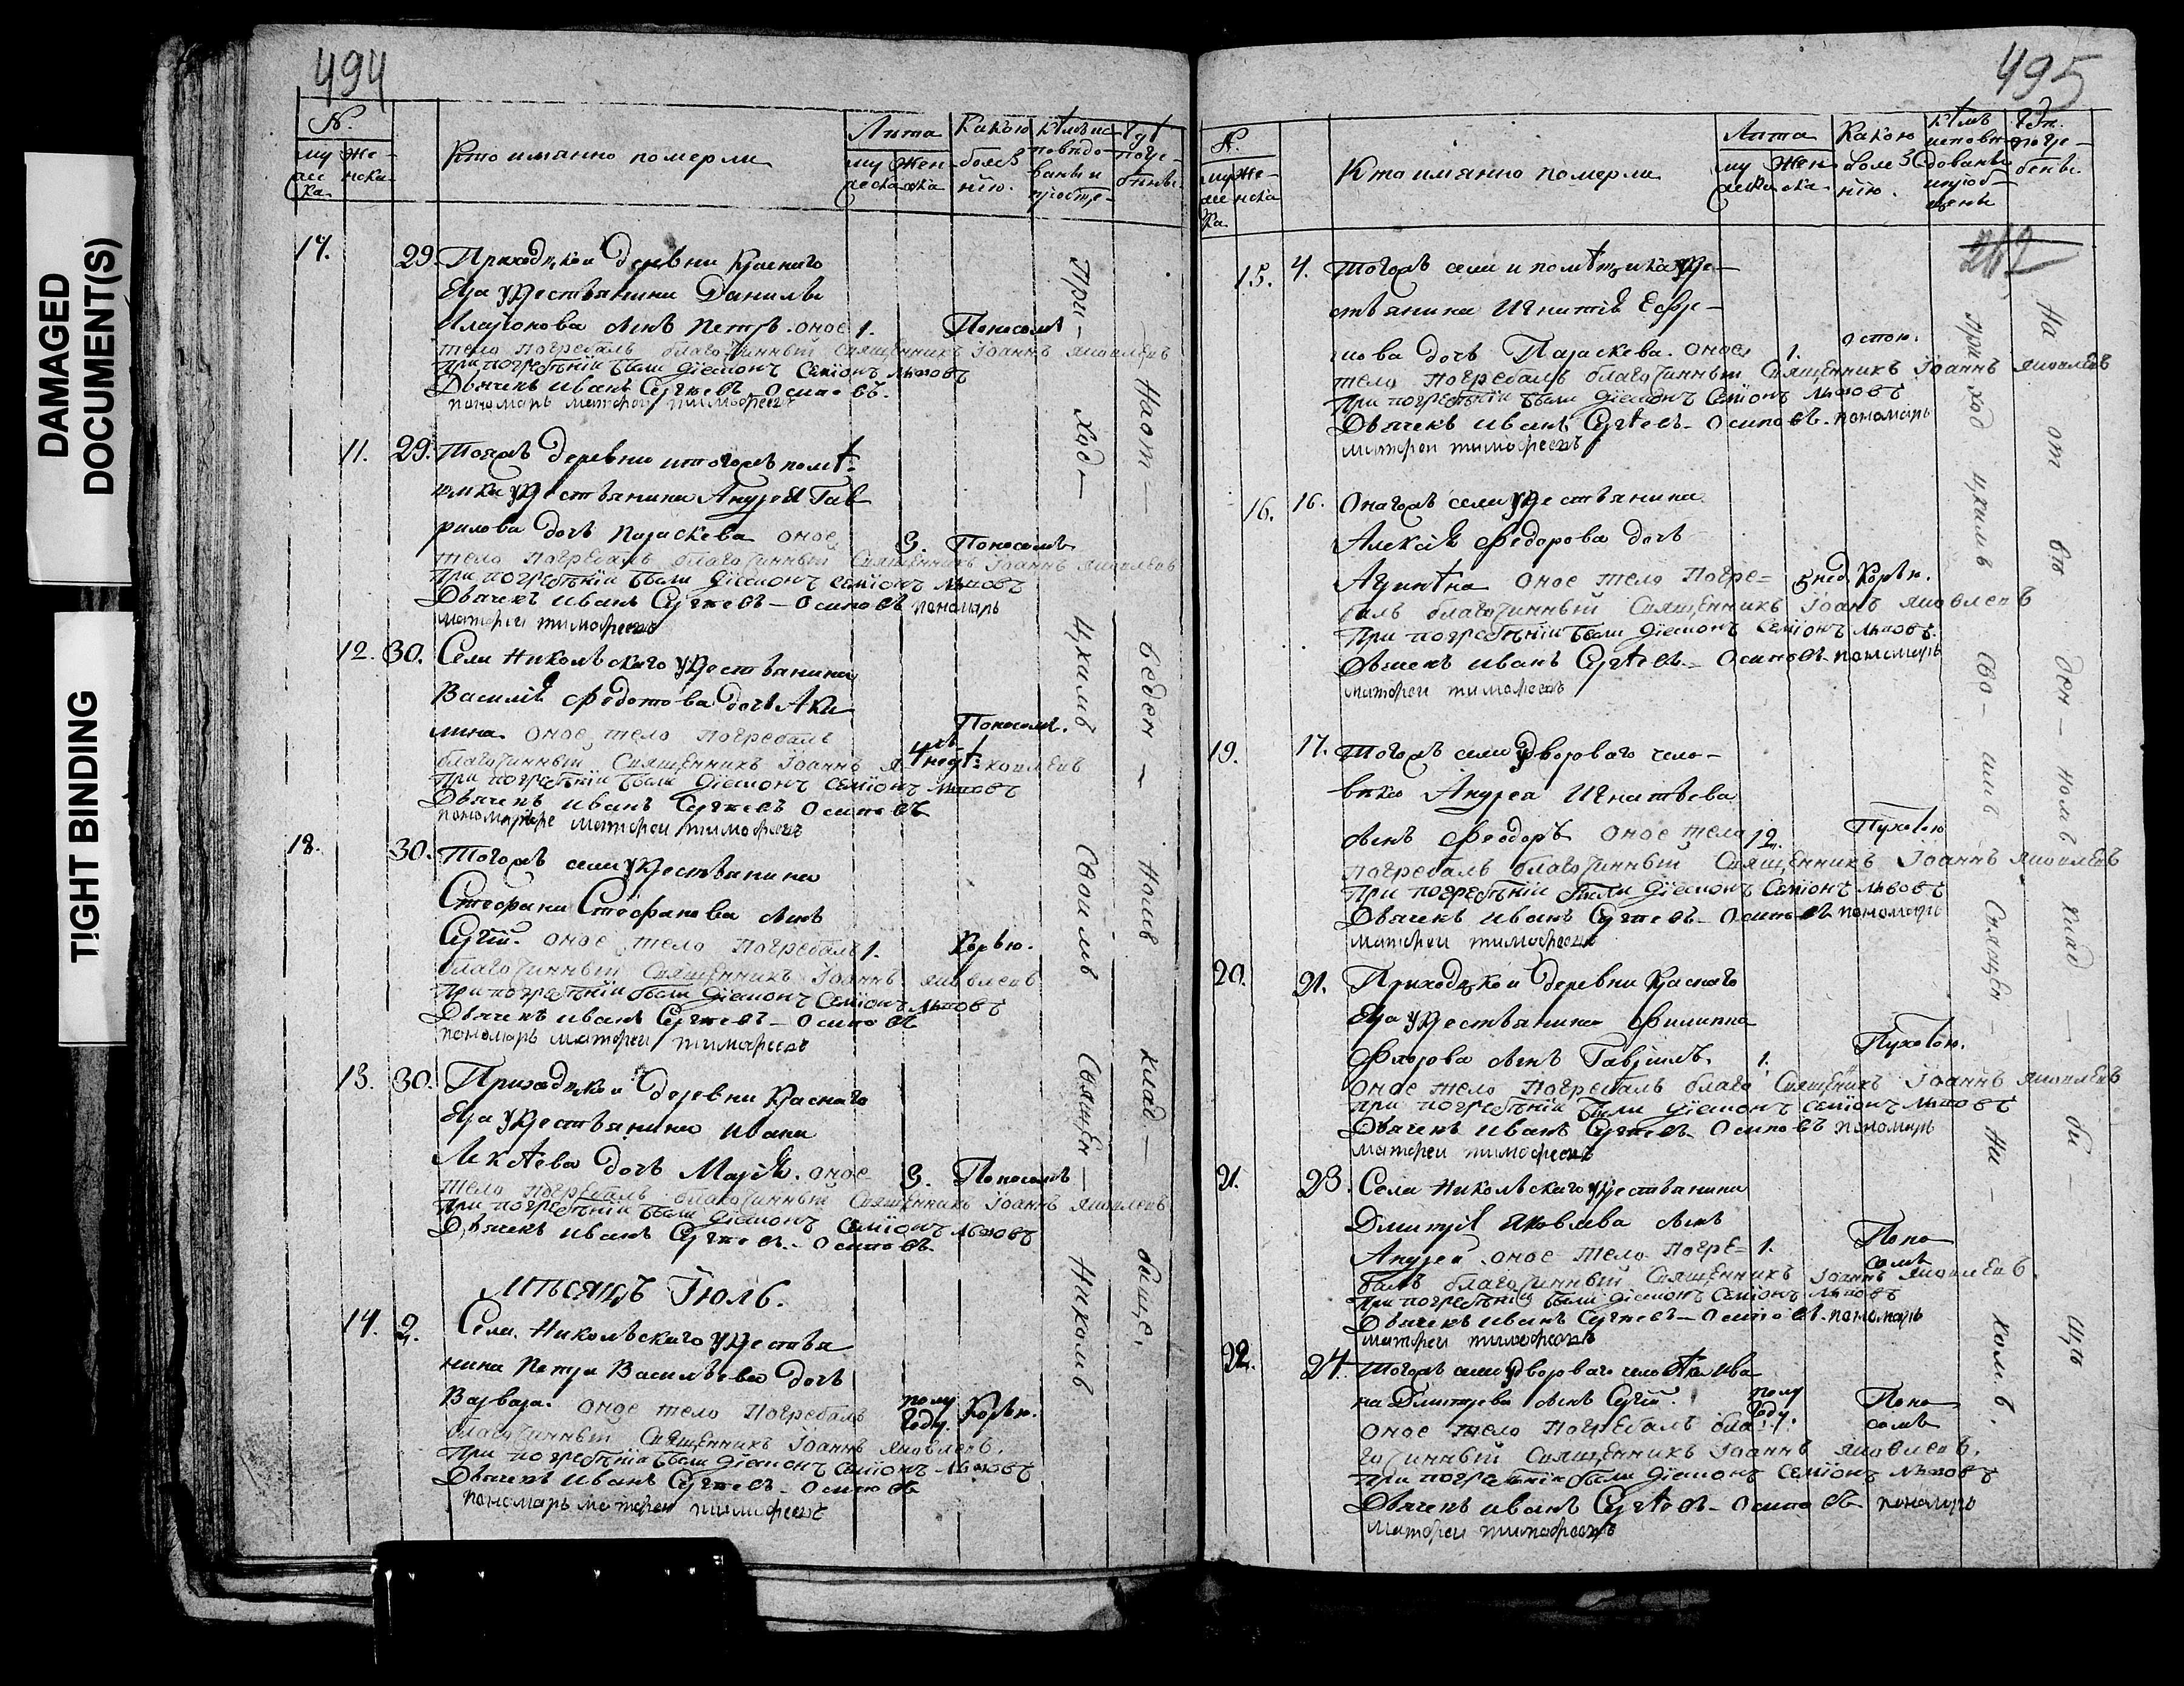 DAMAGED
DOCUMENT(S)
TIGHT BINDING
494
N.
муж
еска
же-
нска
Кто имянно померли
Лѣта
муж
еска
жен
ска
Какою
болѣз
нію.
Кѣмъ ис
повѣдо
ваны и
Гдѣ
погре-
бены
17. 29. Приходской деревни Краснаго
крестьянина Данилы
сынъ Петръ. оное 1. Поносомъ
тело погребалъ благочинный Священникъ Іоаннъ Яковлевъ
При погребѣніи были Діаконъ Семіонъ Львовъ
Дьячекъ Иванъ Сергѣевъ Осиповъ.
пономарь Матфеи Тимофеевъ
11. 29. Тояжъ деревни и тогожъ помѣ-
щика крестьянина Андрея Гав
рилова дочь Параскева оное 3. Поносомъ
тело погребалъ благочинный Священникъ Іоаннъ Яковлевъ
При погребѣніи были Діаконъ Семіонъ Львовъ
Дьячекъ Иванъ Сергѣевъ - Осиповъ пономарь
Матфеи Тимофеевъ
12. 30. Села Никольскаго крестьянина
Василія Федотова дочь Аки
лина. оное тело погребалъ Поносомъ.
благочинный Священникъ Іоаннъ Яковлевъ
При погребѣніи были Діаконъ Семіонъ Львовъ
Дьячекъ Иванъ Сергѣевъ Осиповъ
Матфеи Тимофеевъ
18. 30. Тогожъ села крестьянина
Стефана Стефанова сынъ
Сергій. оное тело погребалъ 1. Корью.
благочинный Священникъ Іоаннъ Яковлевъ
При погребѣніи были Діаконъ Семіонъ Львовъ
Дьячекъ Иванъ Сергѣевъ - Осиповъ
пономарь Матфеи Тимофеевъ
13. 30. Приходской деревни Краснаго
крестьянина Ивана
дочь Марія. оное 3. Поносомъ
тело погребалъ благочинный Священникъ Іоаннъ Яковлевъ
При погребѣніи были Діаконъ Семіонъ Львовъ
Дьячекъ Иванъ Сергѣевъ - Осиповъ.
Мѣсяцъ Іюль.
14. 2. Села Никольскаго крестья
нина Петра Васильева дочь
Варвара. оное тело погребалъ полу году. Корью.
благочинный Священникъ Іоаннъ Яковлевъ.
При погребѣніи были Діаконъ Семіонъ Львовъ
Дьячекъ Иванъ Сергѣевъ - Осиповъ
пономарь Матфеи Тимофеевъ
При- ход- цкимъ своимъ Священ- никомъ
На от- веден- номъ клад- бище.
495
N.
муж
еска
же-
нска
Кто имянно померли
Лѣта
муж
еска
жен
ска
Какою
болѣз
нію.
Кѣмъ
исповѣ
дованы
и приоб-
щены
Гдѣ
погре-
бены
262
15. 4. Тогожъ села и помѣщика кре-
стьянина Игнатія Ефре-
мова дочь Параскева. оное 1. оспою.
тело погребалъ благочинный Священникъ Іоаннъ Яковлевъ
При погребѣніи были Діаконъ Семіонъ Львовъ
Дьячекъ Иванъ Сергѣевъ - Осиповъ. пономарь
Матфеи Тимофеевъ
16. 16. Онагожъ села крестьянина
Алексія Федорова дочь
оное тело погре= 5 нед. Корью.
балъ благочинный Священникъ Іоанъ Яковлевъ
При погребѣніи были Діаконъ Семіонъ Львовъ.
Дьячекъ Иванъ Сергѣевъ - Осиповъ пономарь
Матфеи Тимофеевъ
19. 17. Тогожъ села дворового чело-
вѣка Андрея Игнатьева
сынъ Феодоръ оное тело 12.
погребалъ благочинный Священникъ Іоаннъ Яковлевъ
При погребѣніи были Діаконъ Семіонъ Львовъ
Дьячекъ Иванъ Сергѣевъ - Осиповъ пономарь
Матфеи Тимофеевъ
20. 21. Приходской деревни Краснаго
крестьянина Филиппа
Флорова сынъ Гавріилъ. 1.
оное тело погребалъ благо Священикъ Іоаннъ Яковлевъ
При погребѣніи были Діаконъ Семіонъ Львовъ
Дьячекъ Иванъ Сергѣевъ Осиповъ пономарь
Матфеи Тимофеевъ
21. 23. Села Никольскаго крестьянина
Димитрія Яковлева сынъ
Андрей оное тело погре= 1. Поно
сомъ
балъ благочинный Священникъ Іоаннъ Яковлевъ.
При погребѣніи были Діаконъ Семіонъ Львовъ
Дьячекъ Иванъ Сергѣевъ - Осиповъ. пономарь
Матфеи Тимофеевъ
22. 24. Тогожъ села дворового человѣка Ива
на Димитрева сынъ Сергій. полу году. Поно
сомъ
оное тело погребалъ бла-
гочинный Священникъ Іоаннъ Яковлевъ.
При погребѣніи были Діаконъ Семіонъ Львовъ
Дьячекъ Иванъ Сергѣевъ - Осиповъ пономарь
Матфеи Тимофеевъ
При ход цкимъ сво- имъ Священ- ни- комъ.
На от ве ден- номъ клад- би- щѣ